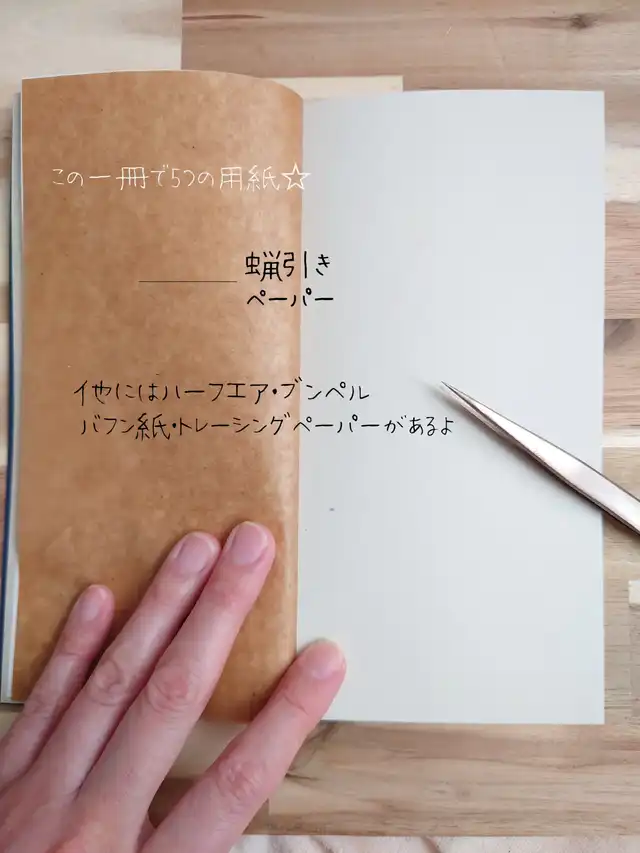 この一冊で5つの用紙☆
蝋引き
ペーパー
他にはハーフエア・ブンペル
バフン紙・トレーシングペーパーがあるよ